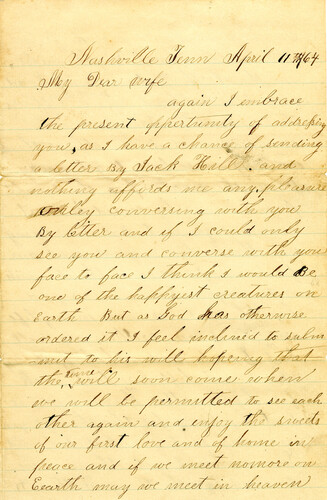 Nashville Tenn April 11th/64
My Dear wife
again I embrace
the present oppertunity of addressing
you, as I have a chance of sending
a letter By Jack Hill. and
nothing affords me any pleasure
conversing with you
By letter and if I could only
see you and converse with you
face to face I think I would Be
one of the happyist creatures on
Earth But as God has otherwise
ordered it I feel inclined to subm
mit to his will hopeing that
the time will soon come when
we will be permitted to see each
other again and enjoy the sweets
of our first love and of home in
peace and if we meet no more on
Eearth may we meet in heaven